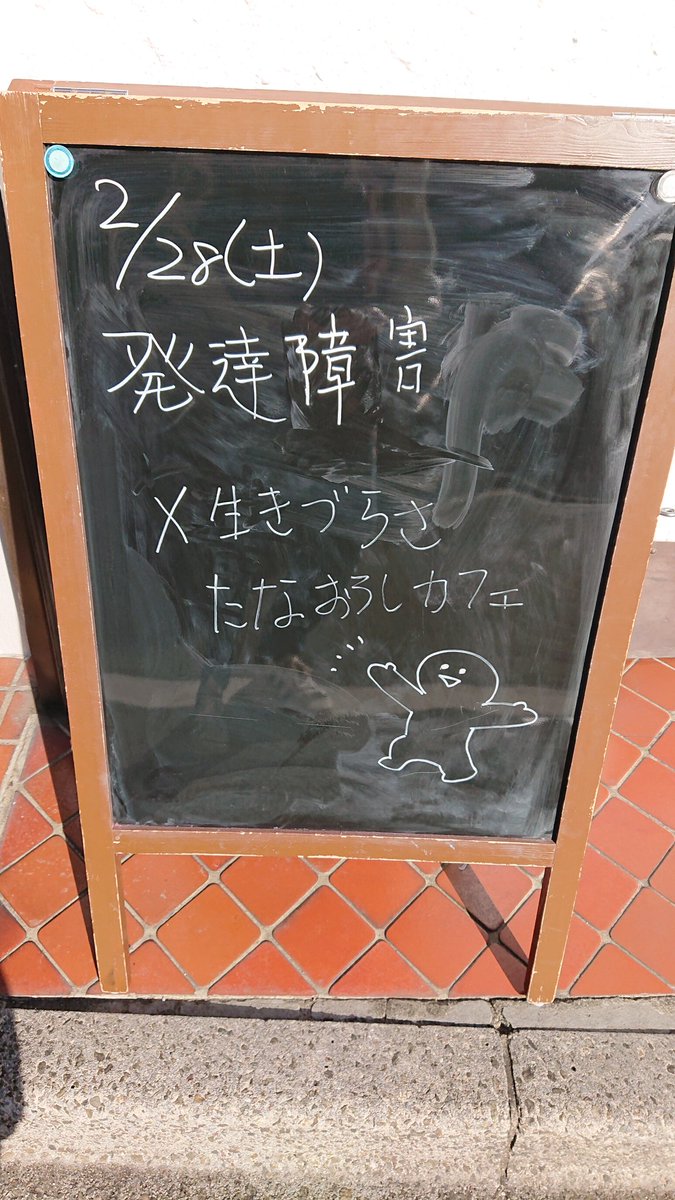 2/28(土)
発達障害
×生きづらさ
たなおろしカフェ